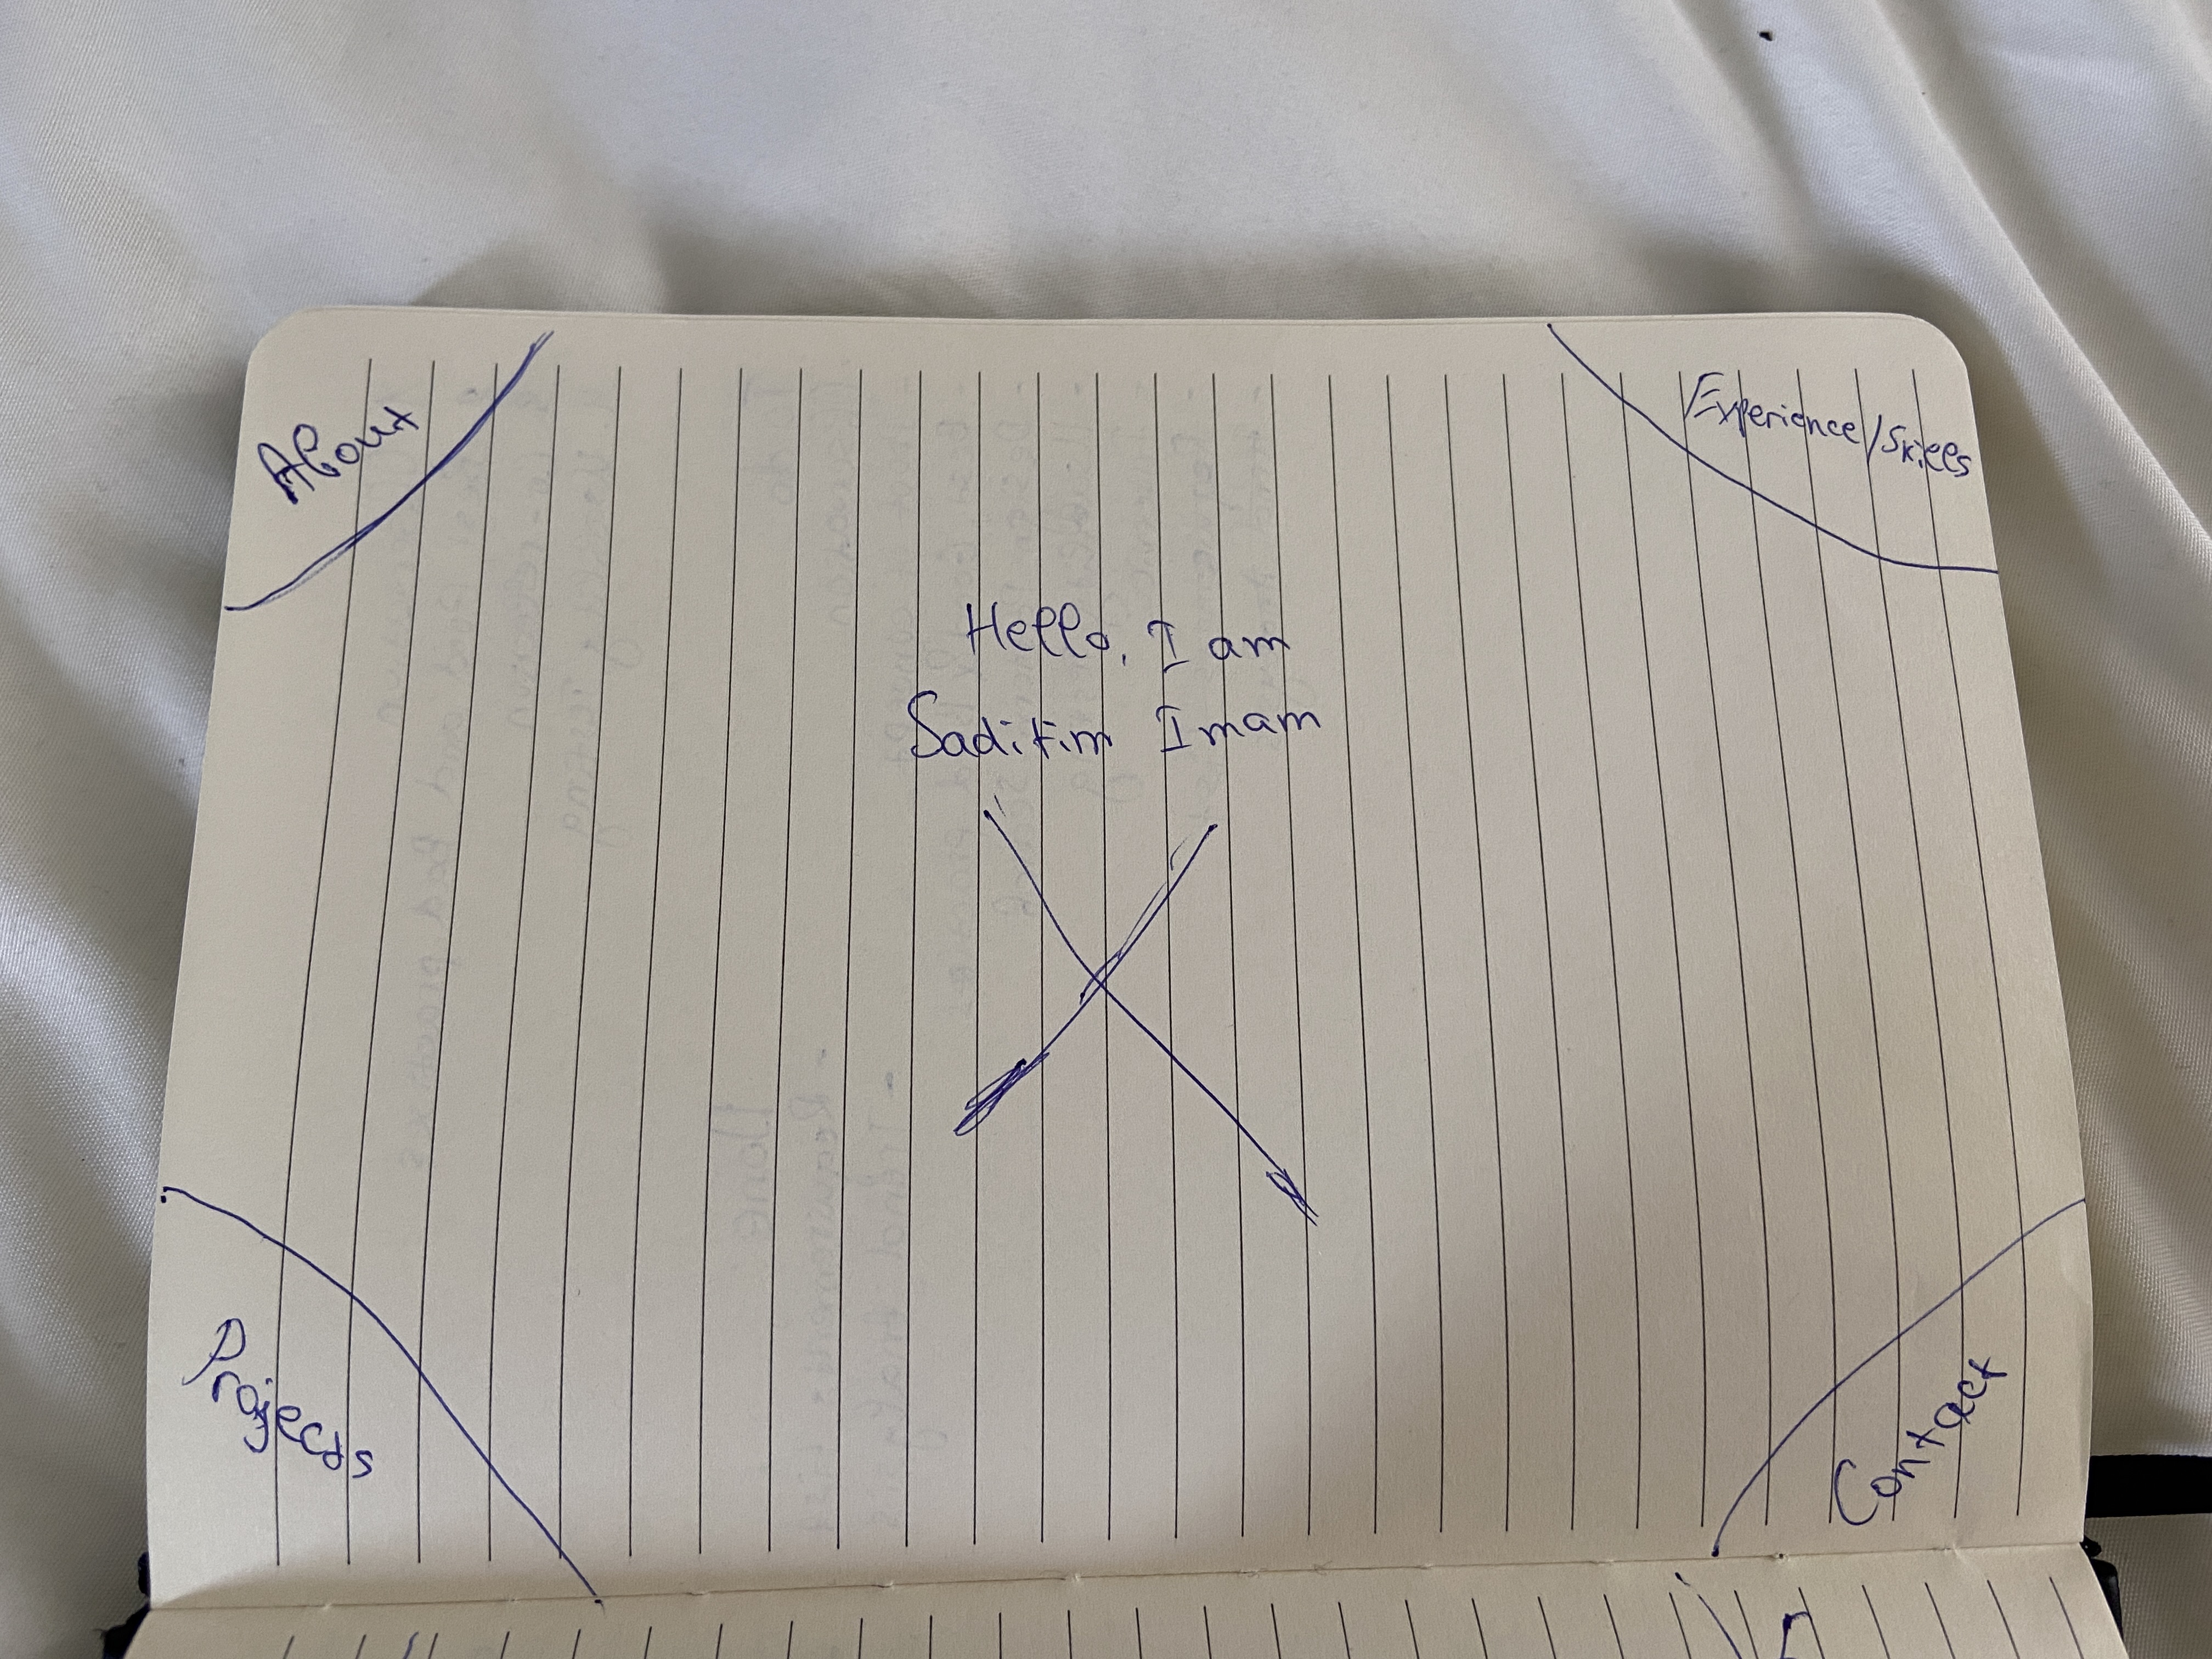 About
Experience/Skills
Hello, I am
Saditim Imam
Projects
Contact